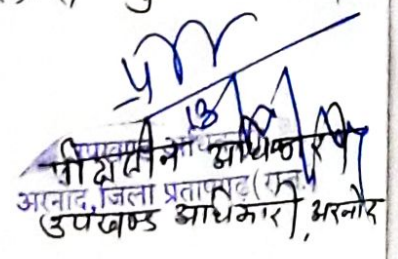 13
पीठासीन अधिकारी
अरनोद, जिला प्रतापगढ़ (राज.)
उपखण्ड अधिकारी, अरनोद